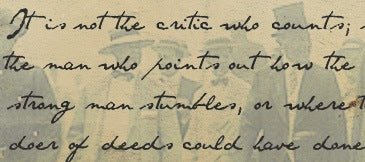 It is not the critic who counts;
the man who points out how the
strong man stumbles, or where
doer of deeds could have done